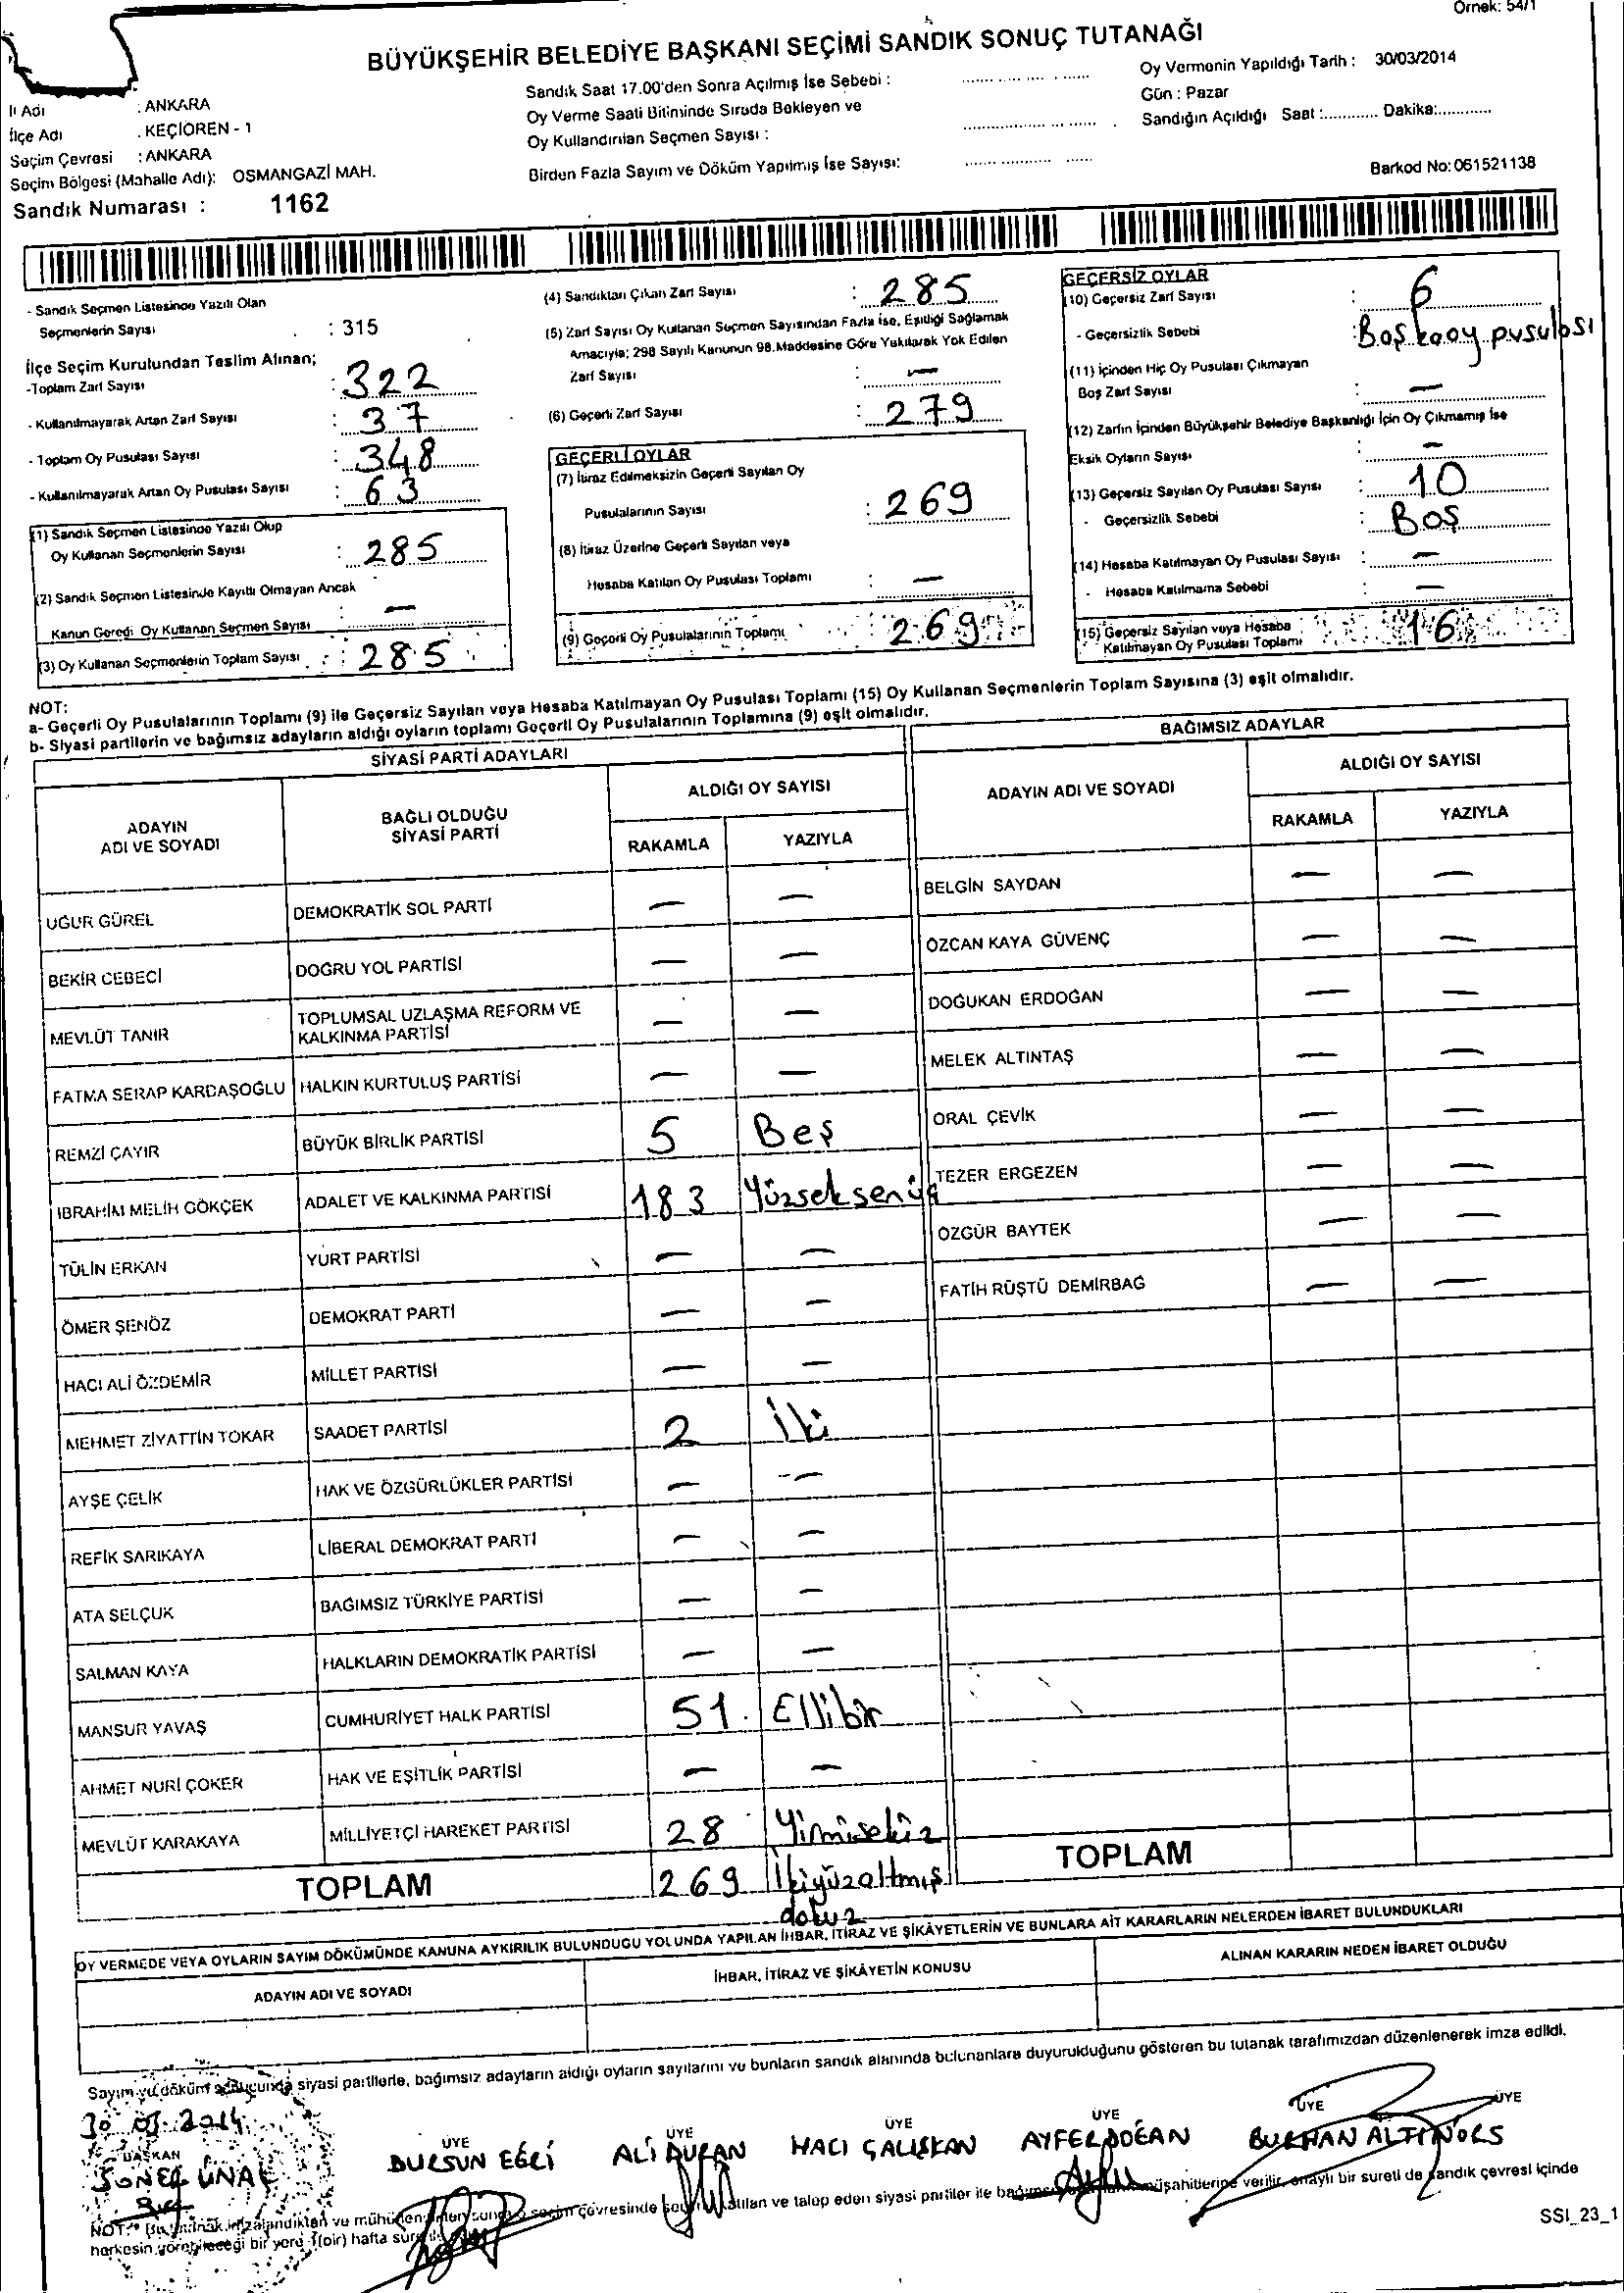 Örnek: 54/1
BÜYÜKŞEHİR BELEDİYE BAŞKANI SEÇİMİ SANDIK SONUÇ TUTANAĞI
İl Adı : ANKARA
İlçe Adı : KEÇİÖREN - 1
Seçim Çevresi : ANKARA
Seçim Bölgesi (Mahalle Adı): OSMANGAZİ MAH.
Sandık Numarası : 1162
Sandık Saat 17.00'den Sonra Açılmış İse Sebebi :
Oy Verme Saati Bitiminde Sırada Bekleyen ve
Oy Kullandırılan Seçmen Sayısı :
Birden Fazla Sayım ve Döküm Yapılmış İse Sayısı:
Oy Vermenin Yapıldığı Tarih : 30/03/2014
Gün : Pazar
Sandığın Açıldığı Saat :............ Dakika:............
Barkod No: 061521138
- Sandık Seçmen Listesinde Yazılı Olan
Seçmenlerin Sayısı : 315
İlçe Seçim Kurulundan Teslim Alınan;
-Toplam Zarf Sayısı : 322
- Kullanılmayarak Artan Zarf Sayısı : 37
- Toplam Oy Pusulası Sayısı : 348
- Kullanılmayarak Artan Oy Pusulası Sayısı : 63
(1) Sandık Seçmen Listesinde Yazılı Olup
Oy Kullanan Seçmenlerin Sayısı : 285
(2) Sandık Seçmen Listesinde Kayıtlı Olmayan Ancak
Kanun Gereği Oy Kullanan Seçmen Sayısı : —
(3) Oy Kullanan Seçmenlerin Toplam Sayısı : 285
(4) Sandıktan Çıkan Zarf Sayısı : 285
(5) Zarf Sayısı Oy Kullanan Seçmen Sayısından Fazla İse, Eşitliği Sağlamak
Amacıyla; 298 Sayılı Kanunun 98.Maddesine Göre Yakılarak Yok Edilen
Zarf Sayısı : —
(6) Geçerli Zarf Sayısı : 279
GEÇERLİ OYLAR
(7) İtiraz Edilmeksizin Geçerli Sayılan Oy
Pusulalarının Sayısı : 269
(8) İtiraz Üzerine Geçerli Sayılan veya
Hesaba Katılan Oy Pusulası Toplamı : —
(9) Geçerli Oy Pusulalarının Toplamı : 269
GEÇERSİZ OYLAR
(10) Geçersiz Zarf Sayısı : 6
- Geçersizlik Sebebi : Boş oy pusulası
(11) İçinden Hiç Oy Pusulası Çıkmayan
Boş Zarf Sayısı : —
(12) Zarfın İçinden Büyükşehir Belediye Başkanlığı İçin Oy Çıkmamış İse
Eksik Oyların Sayısı : —
(13) Geçersiz Sayılan Oy Pusulası Sayısı : 10
- Geçersizlik Sebebi : Boş
(14) Hesaba Katılmayan Oy Pusulası Sayısı : —
- Hesaba Katılmama Sebebi : —
(15) Geçersiz Sayılan veya Hesaba
Katılmayan Oy Pusulası Toplamı : 16
NOT:
a- Geçerli Oy Pusulalarının Toplamı (9) ile Geçersiz Sayılan veya Hesaba Katılmayan Oy Pusulası Toplamı (15) Oy Kullanan Seçmenlerin Toplam Sayısına (3) eşit olmalıdır.
b- Siyasi partilerin ve bağımsız adayların aldığı oyların toplamı Geçerli Oy Pusulalarının Toplamına (9) eşit olmalıdır.
SİYASİ PARTİ ADAYLARI
ADAYIN ADI VE SOYADI BAĞLI OLDUĞU SİYASİ PARTİ ALDIĞI OY SAYISI
RAKAMLA YAZIYLA
UĞUR GÜREL DEMOKRATİK SOL PARTİ — —
BEKİR CEBECİ DOĞRU YOL PARTİSİ — —
MEVLÜT TANIR TOPLUMSAL UZLAŞMA REFORM VE KALKINMA PARTİSİ — —
FATMA SERAP KARDAŞOĞLU HALKIN KURTULUŞ PARTİSİ — —
REMZİ ÇAYIR BÜYÜK BİRLİK PARTİSİ 5 Beş
İBRAHİM MELİH GÖKÇEK ADALET VE KALKINMA PARTİSİ 183 Yüzseksenüç
TÜLİN ERKAN YURT PARTİSİ — —
ÖMER ŞENÖZ DEMOKRAT PARTİ — —
HACI ALİ ÖZDEMİR MİLLET PARTİSİ — —
MEHMET ZİYATTİN TOKAR SAADET PARTİSİ 2 İki
AYŞE ÇELİK HAK VE ÖZGÜRLÜKLER PARTİSİ — —
REFİK SARIKAYA LİBERAL DEMOKRAT PARTİ — —
ATA SELÇUK BAĞIMSIZ TÜRKİYE PARTİSİ — —
SALMAN KAYA HALKLARIN DEMOKRATİK PARTİSİ — —
MANSUR YAVAŞ CUMHURİYET HALK PARTİSİ 51 Ellibir
AHMET NURİ ÇOKER HAK VE EŞİTLİK PARTİSİ — —
MEVLÜT KARAKAYA MİLLİYETÇİ HAREKET PARTİSİ 28 Yirmisekiz
TOPLAM 269 İkiyüzaltmış
dokuz
BAĞIMSIZ ADAYLAR
ADAYIN ADI VE SOYADI ALDIĞI OY SAYISI
RAKAMLA YAZIYLA
BELGİN SAYDAN — —
ÖZCAN KAYA GÜVENÇ — —
DOĞUKAN ERDOĞAN — —
MELEK ALTINTAŞ — —
ORAL ÇEVİK — —
TEZER ERGEZEN — —
ÖZGÜR BAYTEK — —
FATİH RÜŞTÜ DEMİRBAĞ — —
TOPLAM
OY VERMEDE VEYA OYLARIN SAYIM DÖKÜMÜNDE KANUNA AYKIRILIK BULUNDUĞU YOLUNDA YAPILAN İHBAR, İTİRAZ VE ŞİKÂYETLERİN VE BUNLARA AİT KARARLARIN NELERDEN İBARET BULUNDUKLARI
ADAYIN ADI VE SOYADI İHBAR, İTİRAZ VE ŞİKÂYETİN KONUSU ALINAN KARARIN NEDEN İBARET OLDUĞU
Sayım ve döküm sonucunda siyasi partilerle, bağımsız adayların aldığı oyların sayılarını ve bunların sandık alanında bulunanlara duyurulduğunu gösteren bu tutanak tarafımızdan düzenlenerek imza edildi.
30 03 2014
BAŞKAN ÜYE ÜYE ÜYE ÜYE ÜYE ÜYE
SONER ÜNAL DURSUN EĞRİ ALİ DURAN HACI ÇALIŞKAN AYFER DOĞAN BURHAN ALTINÖRS
NOT: Bu tutanak imzalandıktan ve mühürlendikten sonra seçim çevresinde seçime katılan ve talep eden siyasi partiler ile bağımsız müşahitlerine verilir, onaylı bir sureti de sandık çevresi içinde
herkesin görebileceği bir yere 1(bir) hafta süre ile
SSI_23_1